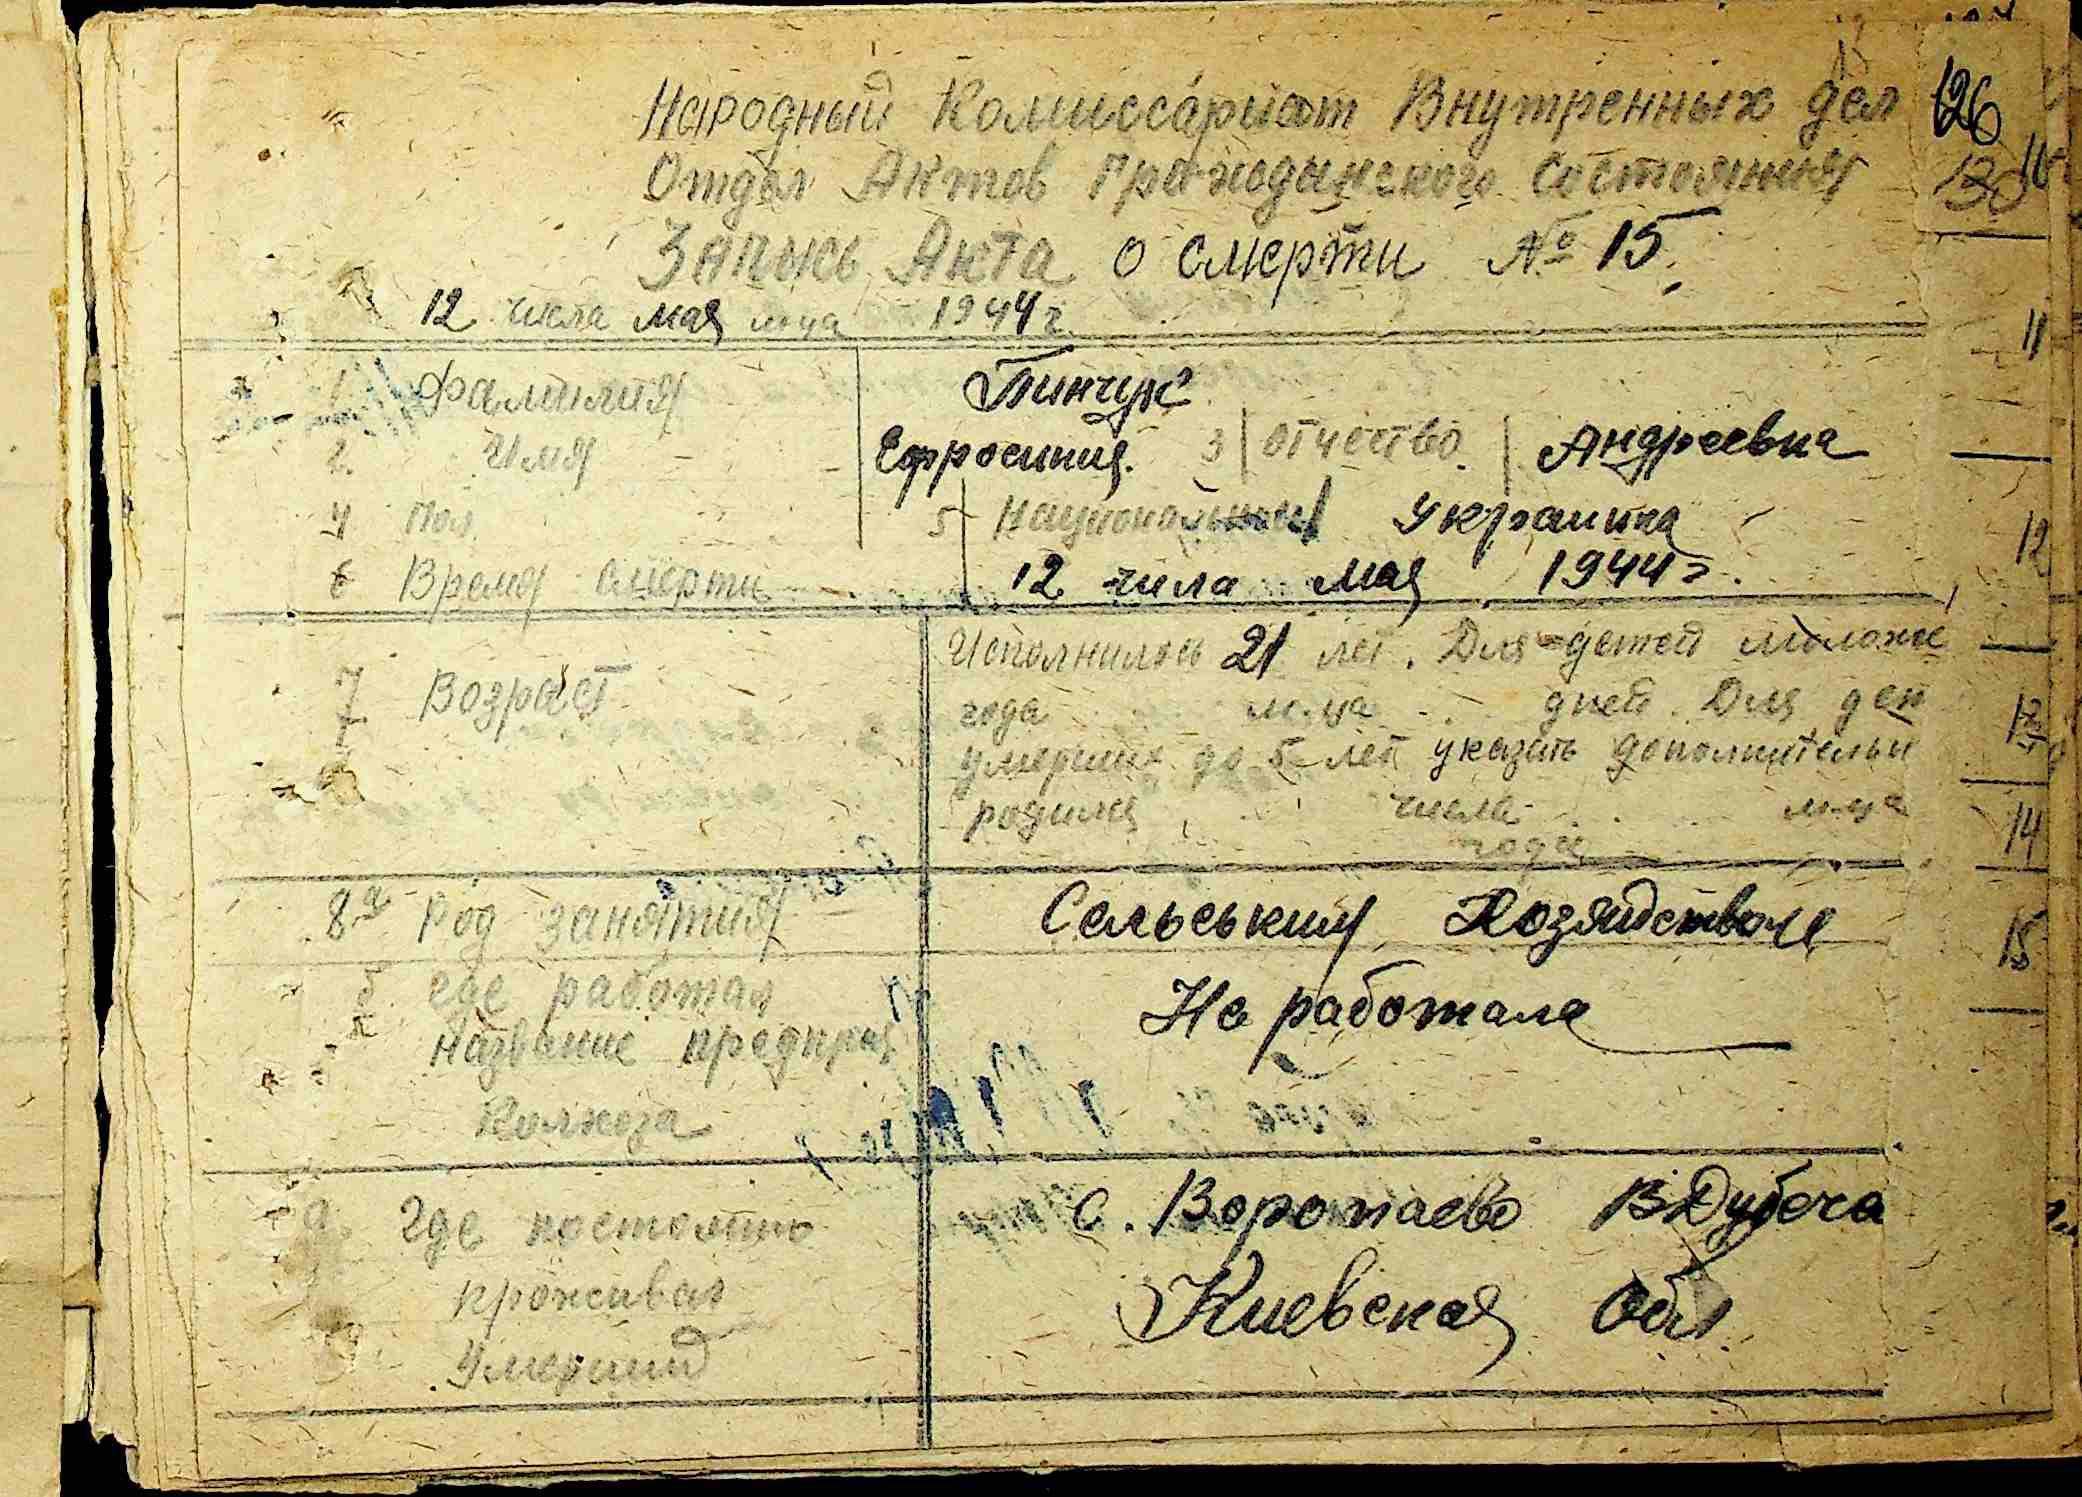 Народный Комиссариат Внутренных дел
126
Отдел Актов Гражодынского Состояния
130
Запысь Акта о смерти № 15.
12 числа мая м-ца 1944 г
1 Фамилия Пинчук
2 Имя Ефросиния. 3 Отчество Андреевна
4 Пол 5 Национальност Украинка
6 Время смерти 12 чила мая 1944 г.
7 Возраст
Исполнилось 21 лет. Для детей моложе
года м-ца дней. Для дет
умерших до 5 лет указать дополнительн
родился числа м-ца
года
8а Род занятия Сельським Хозяйством
б где работал Не работала
Название предприя
Колхоза
Где постоянно с. Воропаево ВДубеча
проживал Киевская Обл
Умерший
11
12
13
14
15